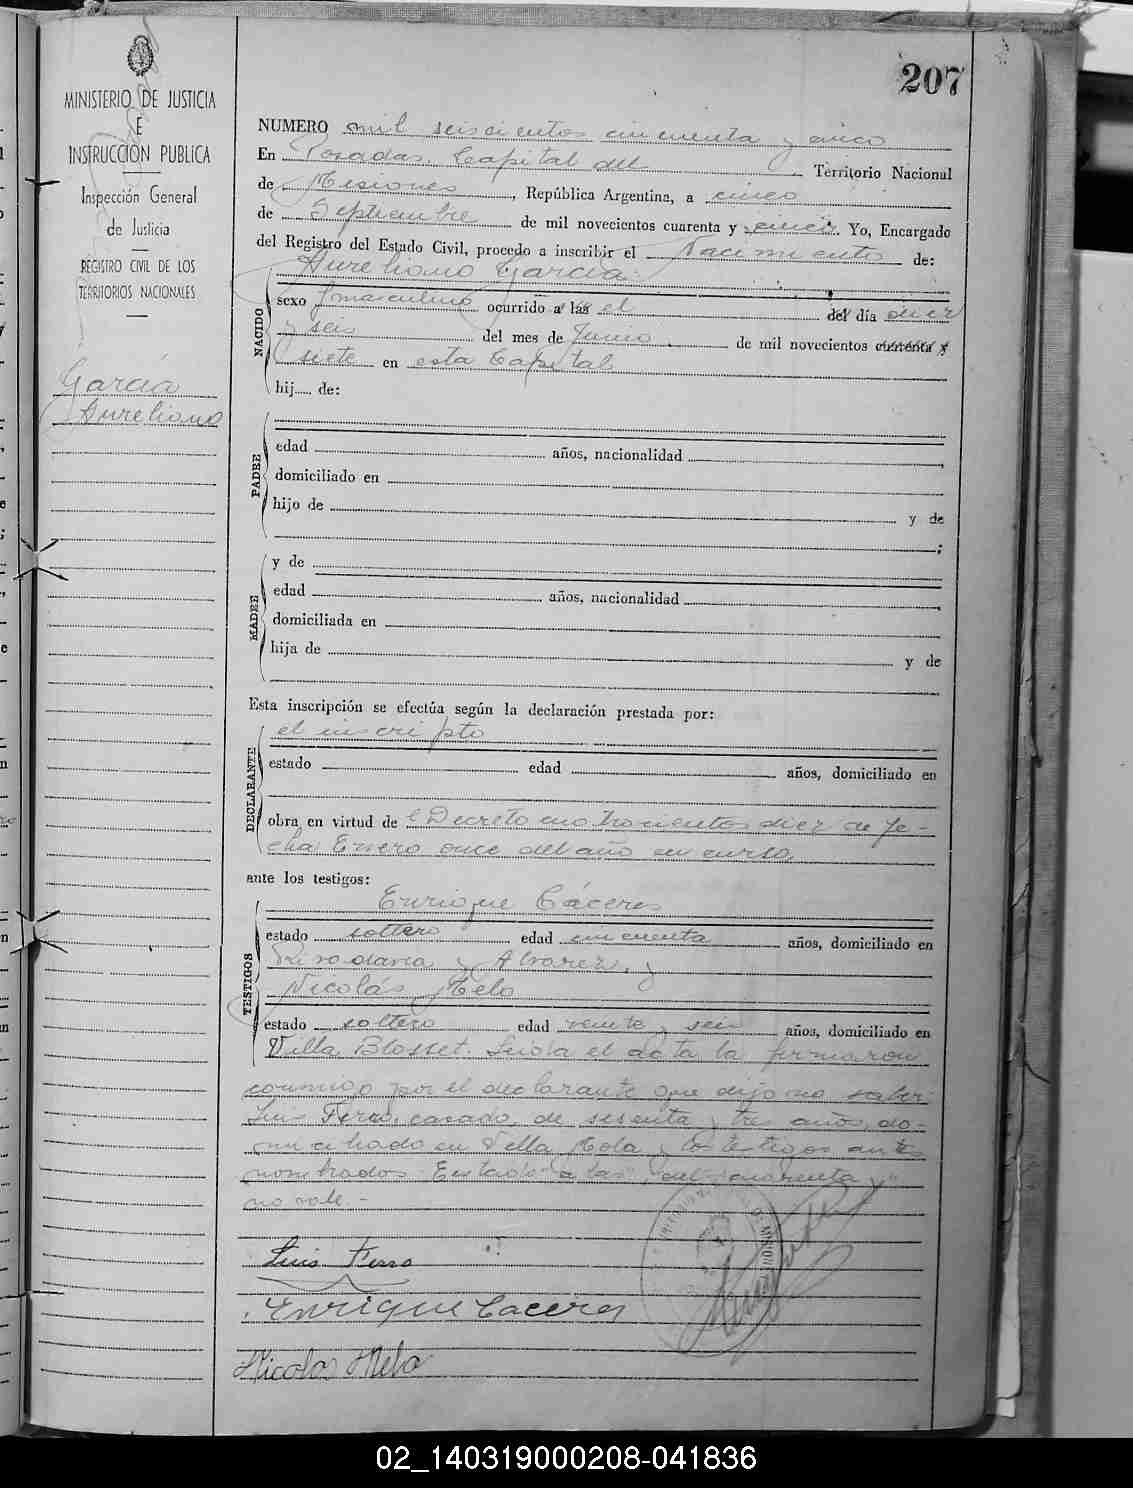 207
MINISTERIO DE JUSTICIA
E
INSTRUCCIÓN PUBLICA
Inspección General
de Justicia
REGISTRO CIVIL DE LOS
TERRITORIOS NACIONALES
García
Aureliano
NUMERO mil seiscientos cincuenta y cinco
En Posadas, Capital del Territorio Nacional
de Misiones, República Argentina, a cinco
de Septiembre de mil novecientos cuarenta y cinco. Yo, Encargado
del Registro del Estado Civil, procedo a inscribir el Nacimiento de:
Aureliano García
NACIDO
sexo masculino ocurrido a las el del día diez
y seis del mes de Junio de mil novecientos cuarenta y
siete en esta Capital
hij..... de:
PADRE
edad años, nacionalidad
domiciliado en
hijo de y de
;
MADRE
y de
edad años, nacionalidad
domiciliada en
hija de y de
Esta inscripción se efectúa según la declaración prestada por:
DECLARANTE
el inscripto
estado edad años, domiciliado en
obra en virtud de Decreto cuatrocientos diez de fe-
cha Enero once del año en curso
ante los testigos:
TESTIGOS
Enrique Cáceres
estado soltero edad cincuenta años, domiciliado en
Rivadavia y Alvarez, y
Nicolás Melo
estado soltero edad veinte y seis años, domiciliado en
Villa Blosset. Leida el acta la firmaron
conmigo por el declarante que dijo no saber
Luis Ferro, casado, de sesenta y tres años, do-
miciliado en Villa Mola y los testigos antes
nombrados. Entado "a las" "del" "cuarenta y"
no vale.-
Luis Ferro
Enrique Caceres
Nicolas Melo
02_140319000208-041836